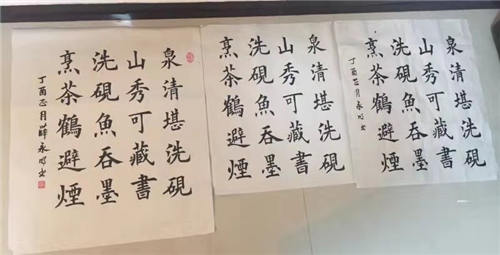 泉清堪洗硯
山秀可藏書
洗硯魚吞墨
烹茶鶴避煙
丁酉正月薛永
泉清堪洗硯
山秀可藏書
洗硯魚吞墨
烹茶鶴避煙
泉清堪洗硯
山秀可藏書
洗硯魚吞墨
烹茶鶴避煙
丁酉正月永